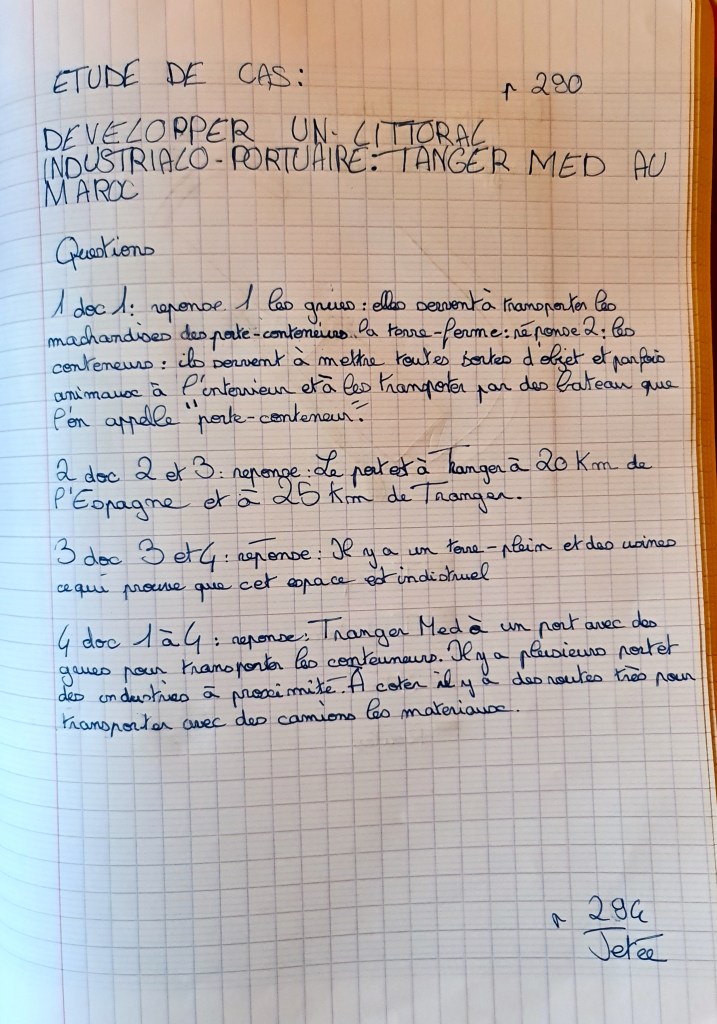 ETUDE DE CAS: p 290
DEVELOPPER UN LITTORAL
INDUSTRIALO-PORTUAIRE: TANGER MED AU
MAROC
Questions
1 doc 1: reponse 1 les grues: elles servent à transporter les
machandises des porte-conteneurs la terre-ferme: réponse 2: les
conteneurs: ils servent à mettre toutes sortes d'objet et parfois
animaux à l'interrieur et à les transpoter par des bateau que
l'on appelle "porte-conteneur".
2 doc 2 et 3: reponse: Le port est à Tranger à 20 Km de
l'Espagne et à 25 Km de Tranger.
3 doc 3 et 4: reponse: Il y a un terre-plein et des usines
ce qui prouve que cet espace est indistruel
4 doc 1 à 4: reponse: Tranger Med à un port avec des
grues pour transporter les conteuneurs. Il y a plusieurs port et
des industries à proximité. A coter il y a des routes très pour
transporter avec des camions les materiaux.
p 294
Jetée